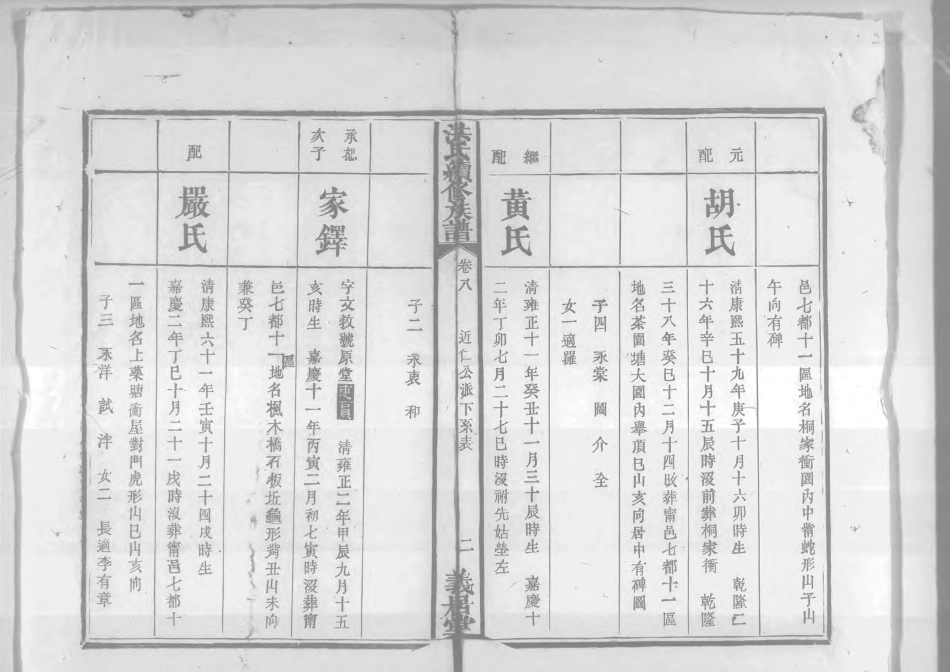 邑七都十一區地名桐家衝園內中嘴蛇形山子山
午向有碑
元配
胡氏
清康熙五十九年庚子十月十六卯時生 乾隆二
十六年辛巳十月十五辰時沒前葬桐家衝 乾隆
三十八年癸巳十二月十四改葬甯邑七都十一區
地名茶園塘大園內舉頂巳山亥向居中有碑圖
子四 永棠 岡 介 全
女一適羅
繼配
黃氏
清雍正十一年癸丑十一月三十辰時生 嘉慶十
二年丁卯七月二十七巳時沒祔先姑塋左
洪氏續修族譜
卷八
近仁公派下系表
二
義居堂
子二 永衷 和
承恕
次子
家鐸
字文教號原堂吏員 清雍正二年甲辰九月十五
亥時生 嘉慶十一年丙寅二月初七寅時沒葬甯
邑七都十一區地名楓木橋石板坵龜形背丑山未向
兼癸丁
配
嚴氏
清康熙六十一年壬寅十月二十四戌時生
嘉慶二年丁巳十月二十一戌時沒葬甯邑七都十
一區地名上藥塘衝屋對門虎形山巳山亥向
子三 永洋 試 泮 女二 長適李有章